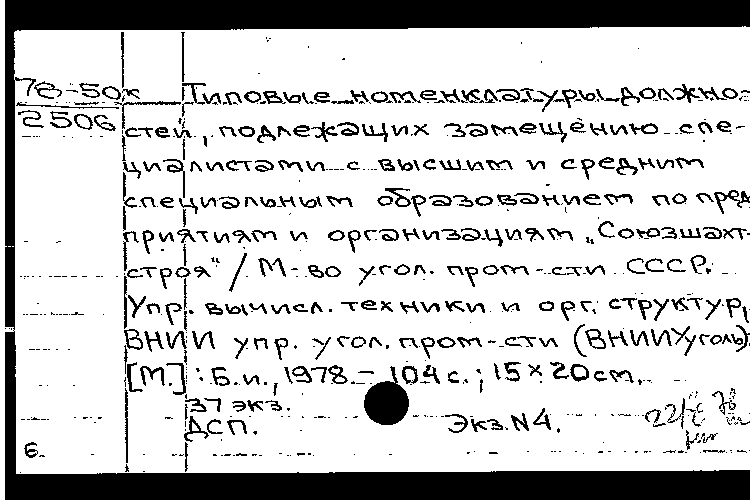 78-50к Типовые номенклатуры должно-
2506 стей, подлежащих замещению спе-
циалистами с высшим и средним
специальным образованием по пред
приятиям и организациям „Союзшахт-
строя" / М-во угол. пром-сти СССР.
Упр. вычисл. техники и орг. структур,
ВНИИ упр. угол. пром-сти (ВНИИУуголь)
[М.] : Б.и., 1978. - 104 с. ; 15×20см.
37 экз.
ДСП. Экз. N4.
6.